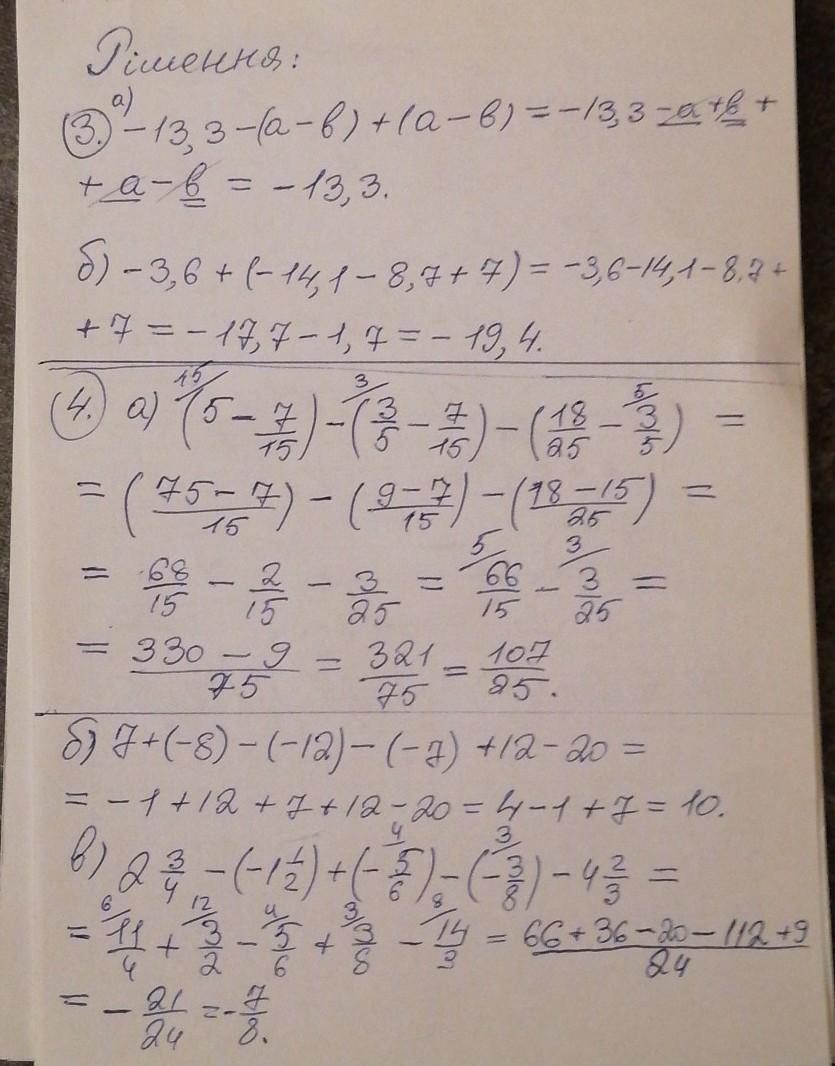 Рішення:
3. а) -13,3-(a-b)+(a-b)=-13,3-a+b+
+a-b=-13,3.
б) -3,6+(-14,1-8,7+7)=-3,6-14,1-8,7+
+7=-17,7-1,7=-19,4.
4. а) 15/(5-7/15)-3/(3/5-7/15)-(18/25-5/3/5)=
=(75-7/15)-(9-7/15)-(18-15/25)=
=68/15-2/15-3/25=5/66/15-3/3/25=
=330-9/75=321/75=107/25.
б) 7+(-8)-(-12)-(-7)+12-20=
=-1+12+7+12-20=4-1+7=10.
в) 2 3/4-(-1 1/2)+(-4/5/6)-(-3/3/8)-4 2/3=
=6/11/4+12/3/2-4/5/6+3/3/8-8/14/3=66+36-20-112+9/24
=-21/24=-7/8.